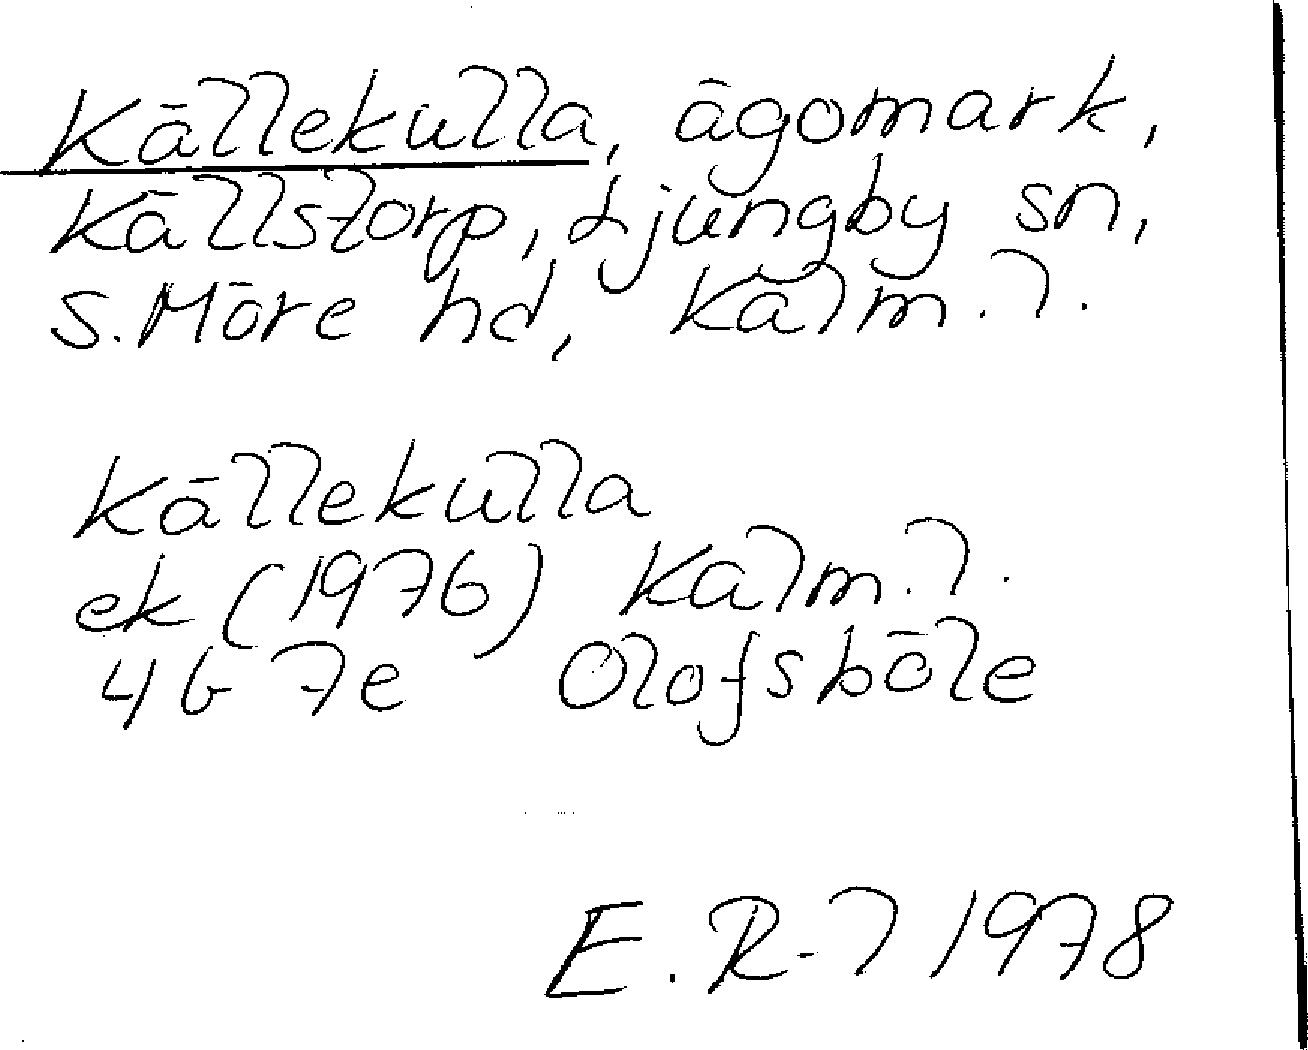 Källekulla, ägomark,
Källstorp, Ljungby sn,
S. Möre hd, Kalm. l.
Källekulla
ek (1976) Kalm. l.
4G 7e Olofsböle
E. R-l 1978